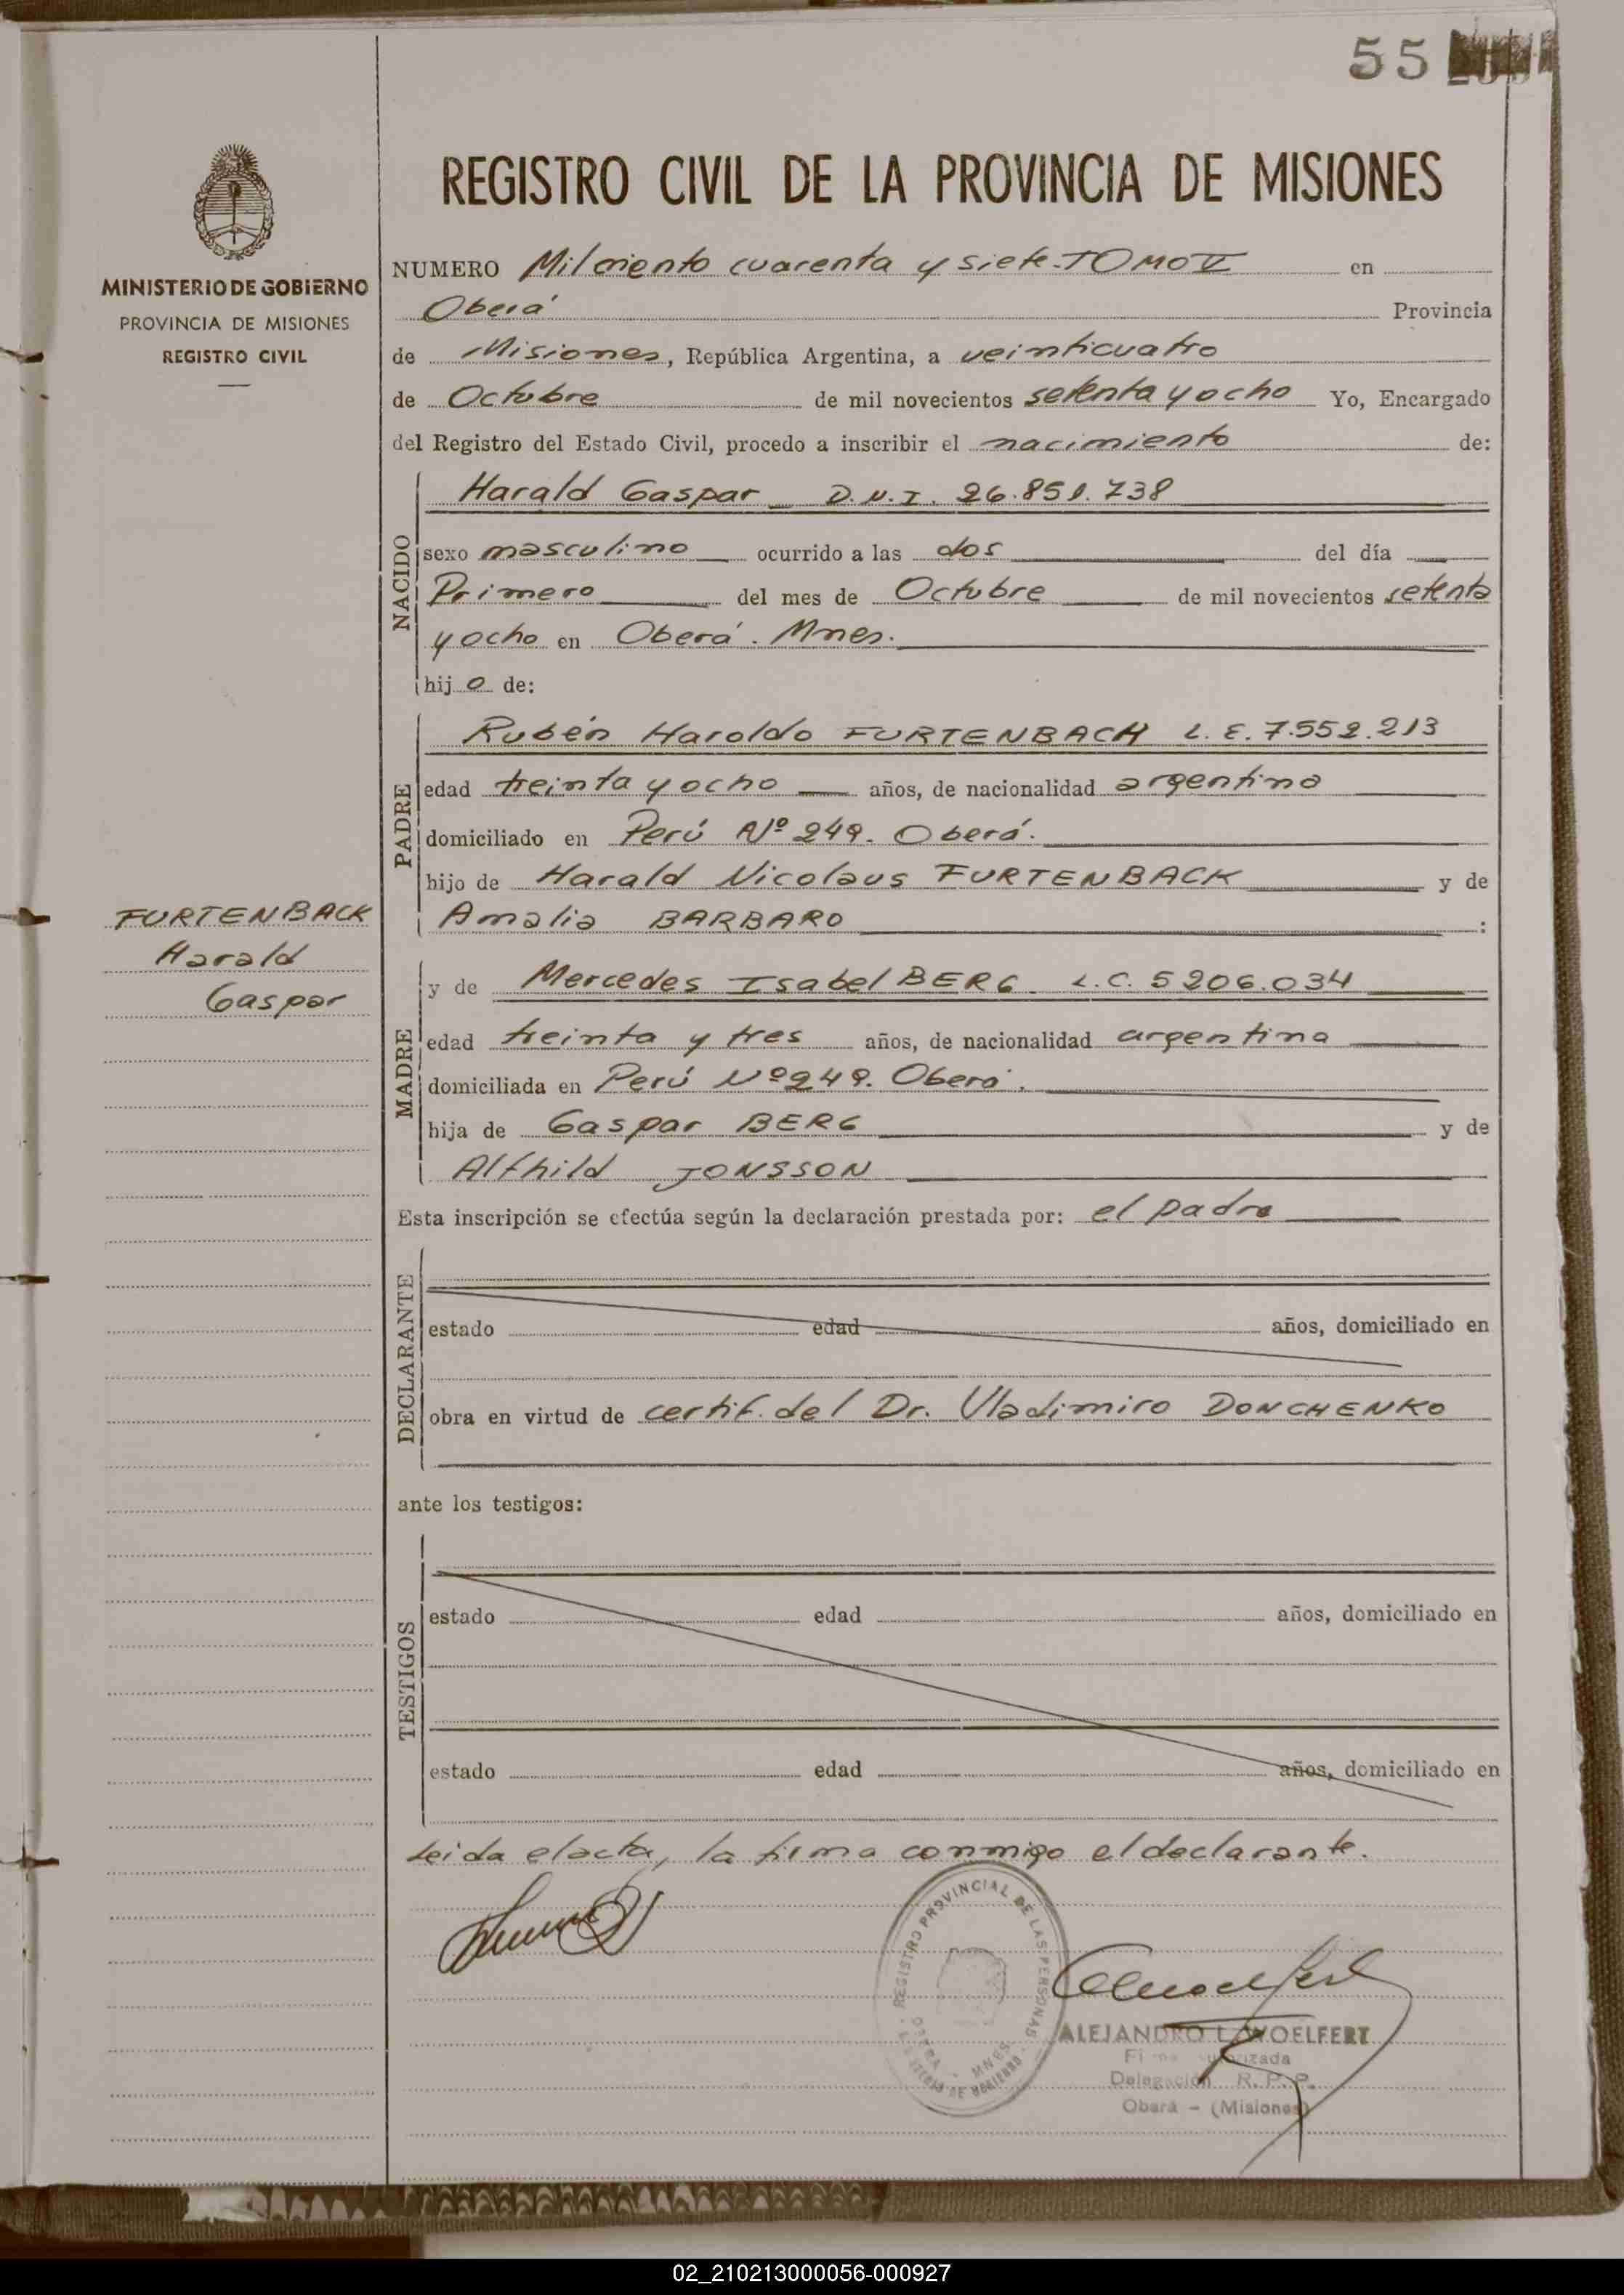 55
REGISTRO CIVIL DE LA PROVINCIA DE MISIONES
MINISTERIO DE GOBIERNO
PROVINCIA DE MISIONES
REGISTRO CIVIL
NUMERO Mil ciento cuarenta y siete - TOMO V en
Oberá Provincia
de Misiones, República Argentina, a veinticuatro
de Octubre de mil novecientos setenta y ocho Yo, Encargado
del Registro del Estado Civil, procedo a inscribir el nacimiento de:
NACIDO
Harald Gaspar D.N.I. 26.851.738
sexo masculino ocurrido a las dos del día
Primero del mes de Octubre de mil novecientos setenta
y ocho en Oberá. Mnes.
hijo de:
PADRE
Rubén Haroldo FURTENBACH L.E. 7.552.213
edad treinta y ocho años, de nacionalidad argentina
domiciliado en Perú Nº 249. Oberá.
hijo de Harald Nicolaus FURTENBACK y de
Amalia BARBARO :
FURTENBACK
Harald
Gaspar
MADRE
y de Mercedes Isabel BERG L.C. 5206.034
edad treinta y tres años, de nacionalidad argentina
domiciliada en Perú Nº 249. Oberá.
hija de Gaspar BERG y de
Alfhild JONSSON
Esta inscripción se efectúa según la declaración prestada por: el padre
DECLARANTE
estado edad años, domiciliado en
obra en virtud de certif. del Dr. Vladimiro DONCHENKO
ante los testigos:
TESTIGOS
estado edad años, domiciliado en
estado edad años, domiciliado en
Leida el acta, la firma conmigo el declarante.
REGISTRO PROVINCIAL DE LAS PERSONAS
OBERA - MNES.
ALEJANDRO L. WOELFERT
Firma Autorizada
Delegación R. P. P.
Oberá - (Misiones)
02_210213000056-000927